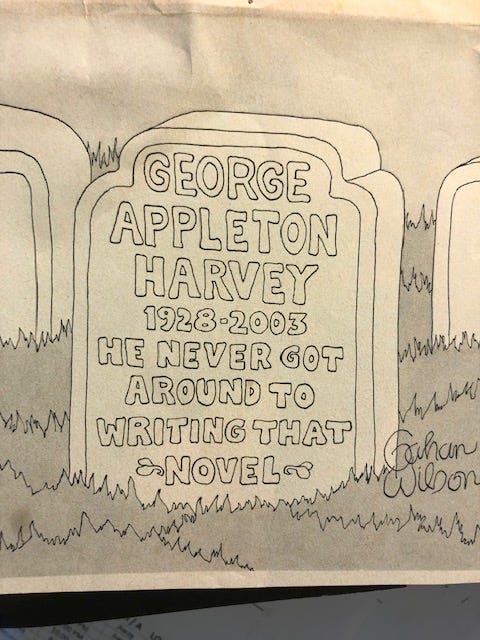 GEORGE
APPLETON
HARVEY
1928-2003
HE NEVER GOT
AROUND TO
WRITING THAT
NOVEL
Gahan
Wilson